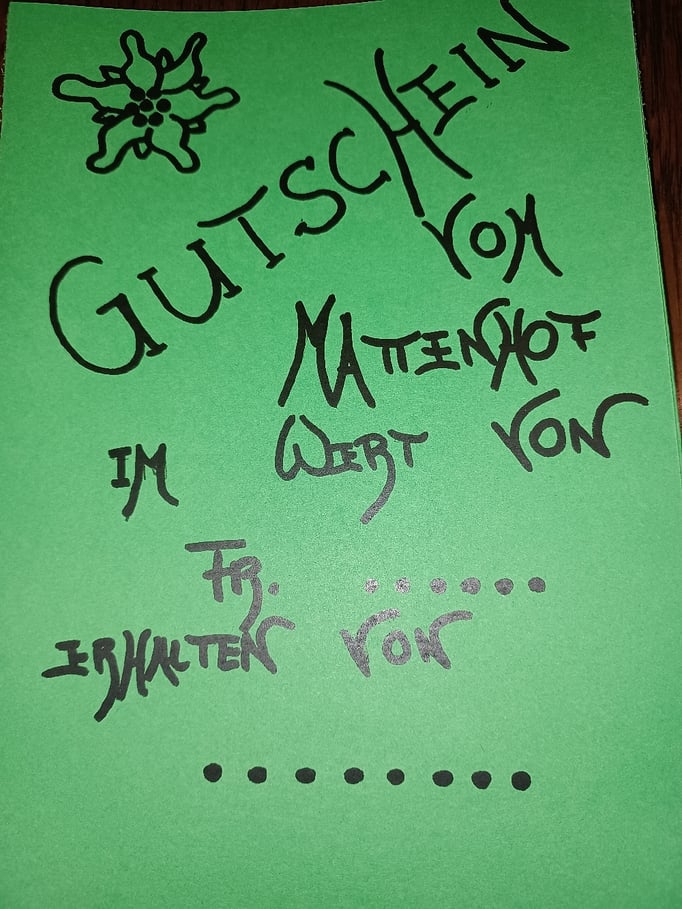 GUTSCHEIN
VOM
MATTENHOF
IM WERT VON
FR. ......
ERHALTEN VON
........